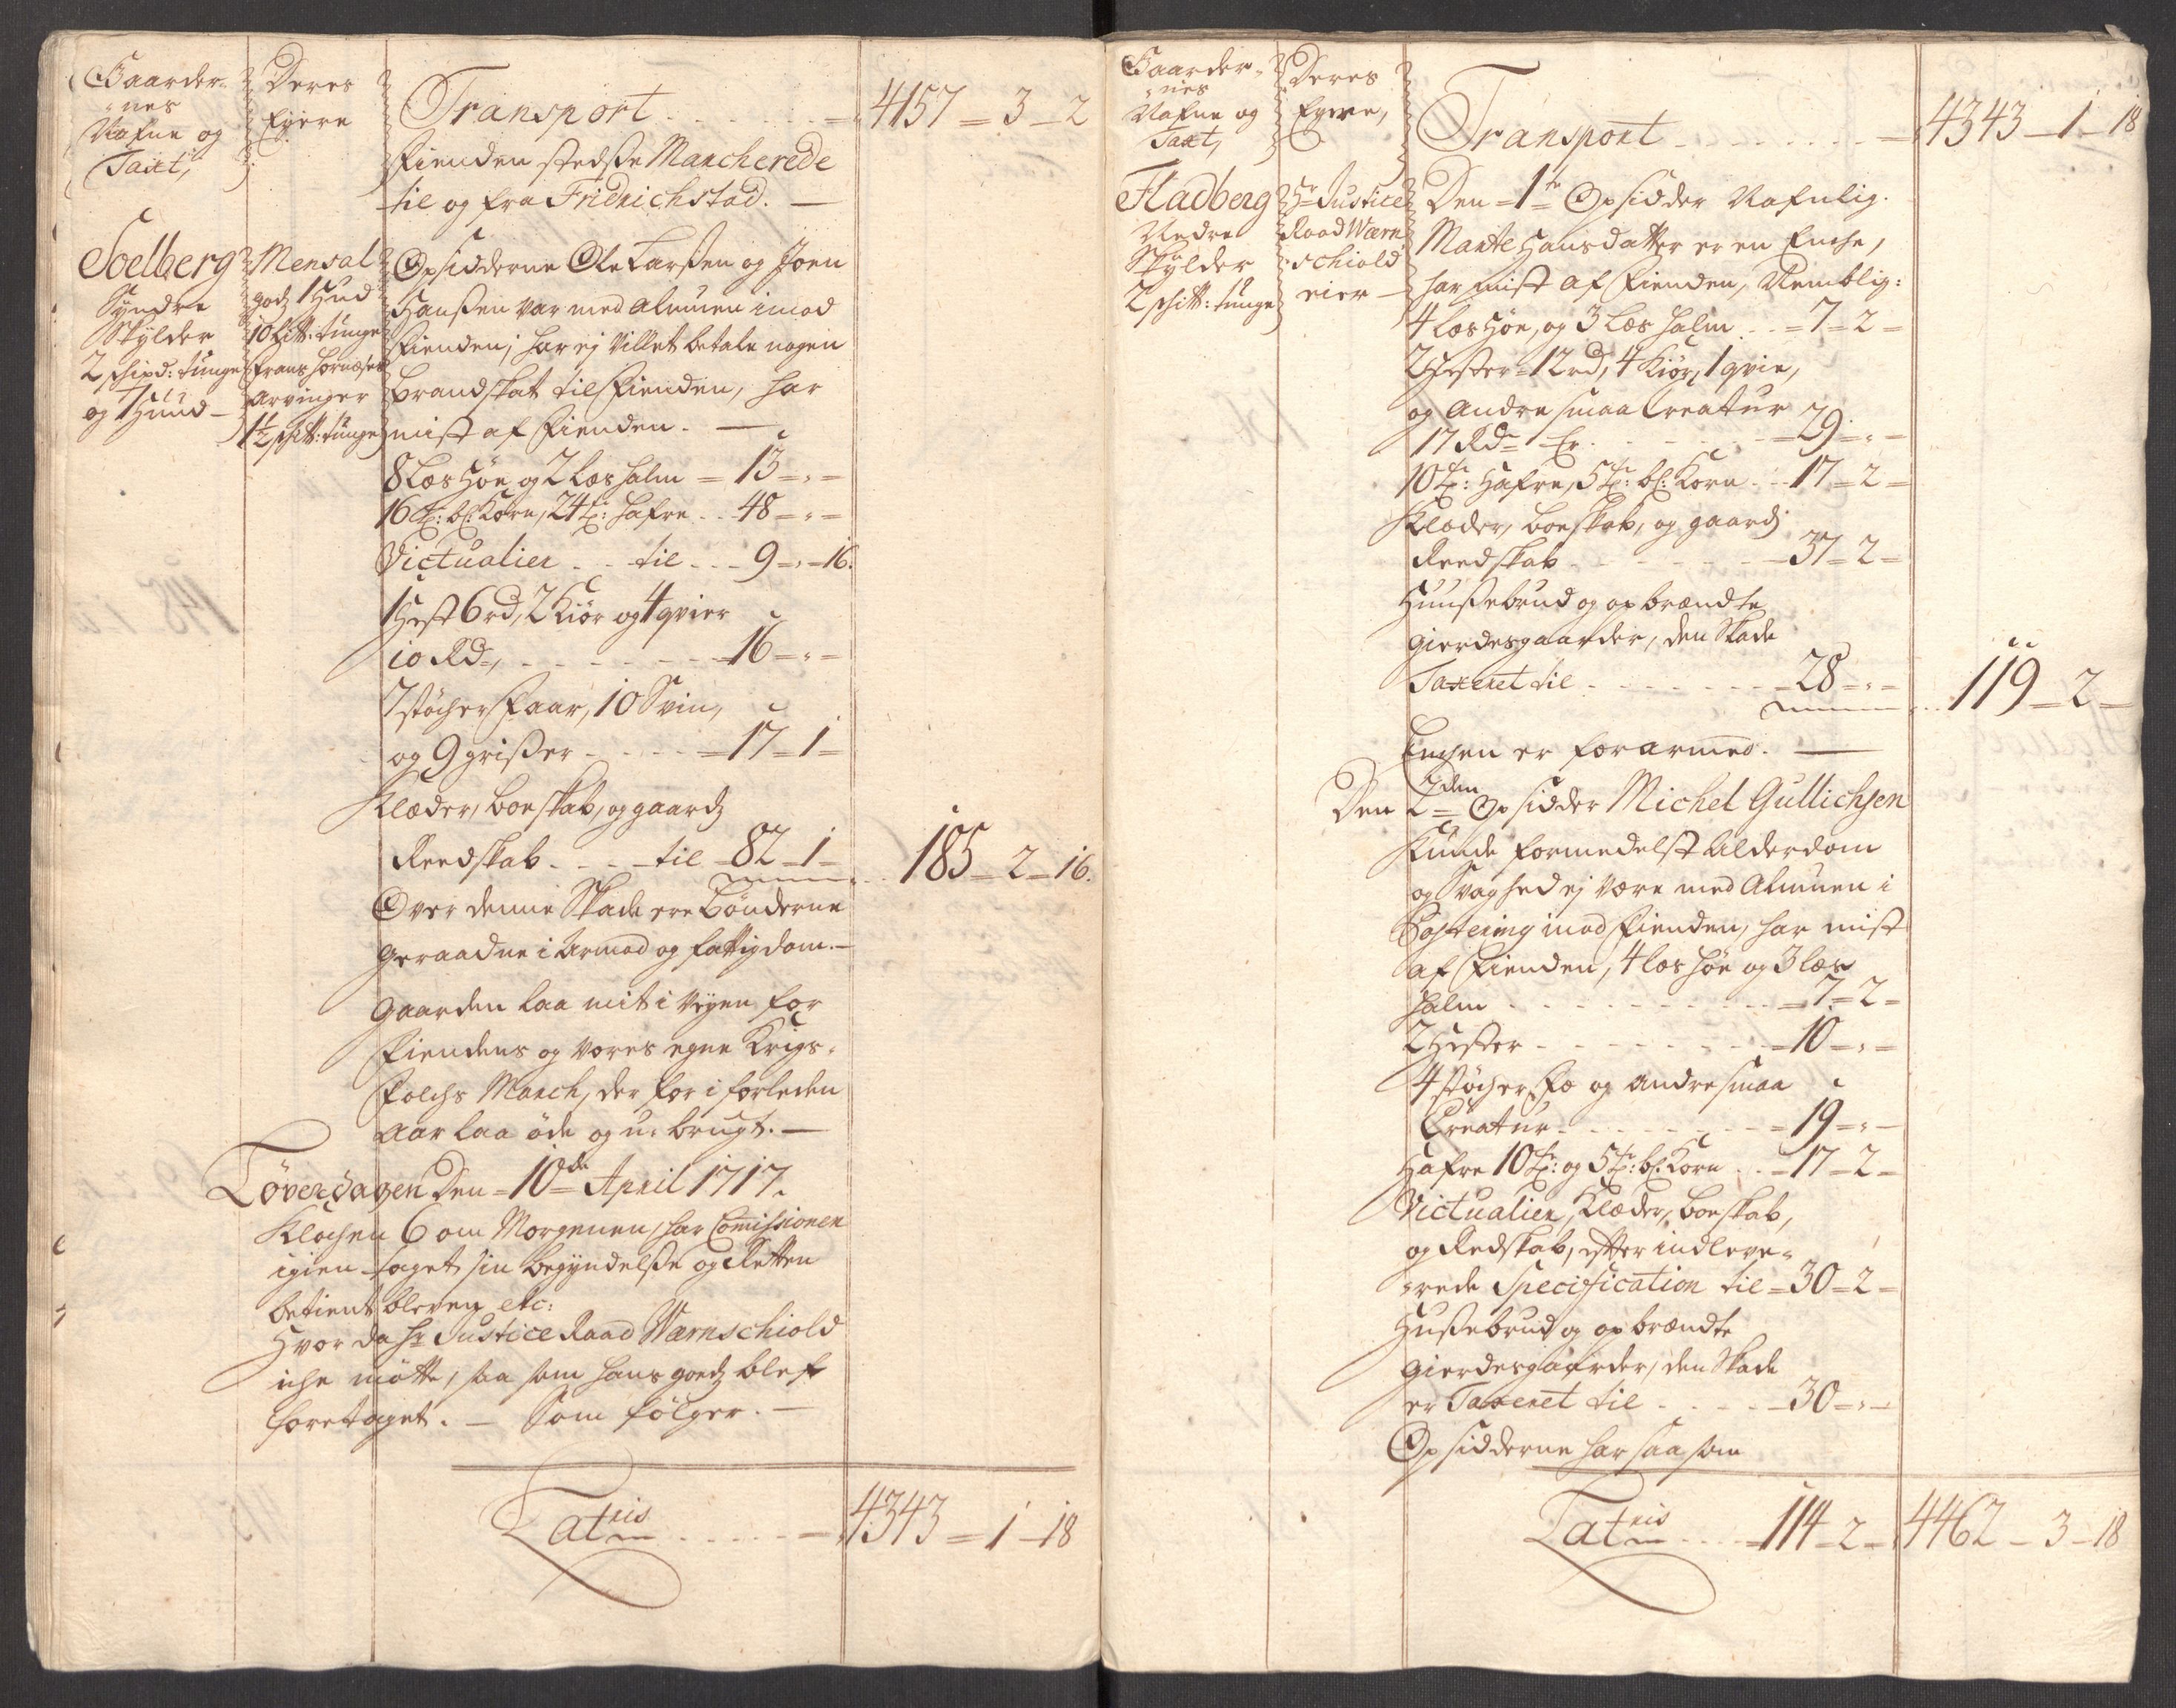 Gaarder-
nes
Nafne og
Taxt,
Deres
Eyere
Transport 4157 - 3 - 2
Fienden stedsse Marcherede
til og fra Fridrichstad.
Soelberg
Syndre
Skylder
2 schipd: tunge
og 1 Huud
Mensal
godz 1 Hud
10 Litt: tunge
Frans
Arvinger
1½ schitt: tunge
Opsidderne Ole Larssen og Joen
Hanssen var med Almuen imod
Fienden, har ej Villet betale nogen
Brandskat til Fienden, har
mist af Fienden.
8 Læs Høe og 2 Læs halm = 13 - " -
16 tr: bl: Korn, 24 tr: hafre 48 - " -
Victualier til 9 - " - 16.
1 Hest 6 rd, 2 Kiør og 4 qvier
10 Rd, 16 - " -
7 støcher Faar, 10 Svin,
og 9 grisser 17 - 1 -
Klæder, boeskab, og gaardz
Reedskab til 82 - 1 - 185 - 2 - 16.
Over denne Skade ere Bønderne
geraadne i Armod og fattigdom.
Gaarden laa mit i Vejen for
Fiendens og Vores egne Krigs-
Folchs March, der for i forleden
Aar laa øde og u-brugt.
Løverdagen Den 10de April 1717.
Klochen 6 om Morgenen, har Comissionen
igien taget sin begyndelse og Retten
betient bleven etc:
Hvor da hr Justice Raad Warnschiold
iche møtte, saa som hans godz blef
foretaget. - Som følger.
Lateris 4343 - 1 - 18
Gaarder-
nes
Nafne og
Taxt,
Deres
Eyere,
Transport 4343 - 1 - 18
Fladberg
Nedre
Skylder
2 schitt: tunge
Hr Justice
Raad Wærn
schiold
eier
Den 1te Opsidder Nafnlig.
Marte Hansdatter er en Enche,
har mist af Fienden, Nemblig:
4 læs Høe, og 3 Læs halm 7 - 2 -
2 Hester 12 rd, 4 Kiør, 1 qvie,
og andre smaa Creatur
17 Rd Er 29 - " -
10 tr: Hafre, 5 tr: bl: Korn 17 - 2 -
Klæder, boeskab, og gaardz
Reedskab 37 - 2 -
Huussebrud og opbrændte
gierdesgaarder, den Skade
Taxeret til 28 - " - 119 - 2 -
Enchen er forarmed.
Den 2den Opsidder Michel Gullichsen
Kunde formedelst Alderdom
og Svaghed ej være med Almuen i
Postering imod Fienden, har mist
af Fienden, 4 læs høe og 3 læs
halm 7 - 2 -
2 Hester 10 - " -
4 støcher Fæ og andre smaa
Creatur 19 - " -
Hafre 10 tr: og 5 tr: bl: Korn 17 - 2 -
Victualier, Klæder, boeskab,
og Redskab, efter indleve-
rede Specification til 30 - 2 -
Hussebrud og opbrændte
gierdesgaarder, den Skade
er Taxeret til 30 - " -
Opsidderne har saa som
Lateris 114 - 2 - 4462 - 3 - 18